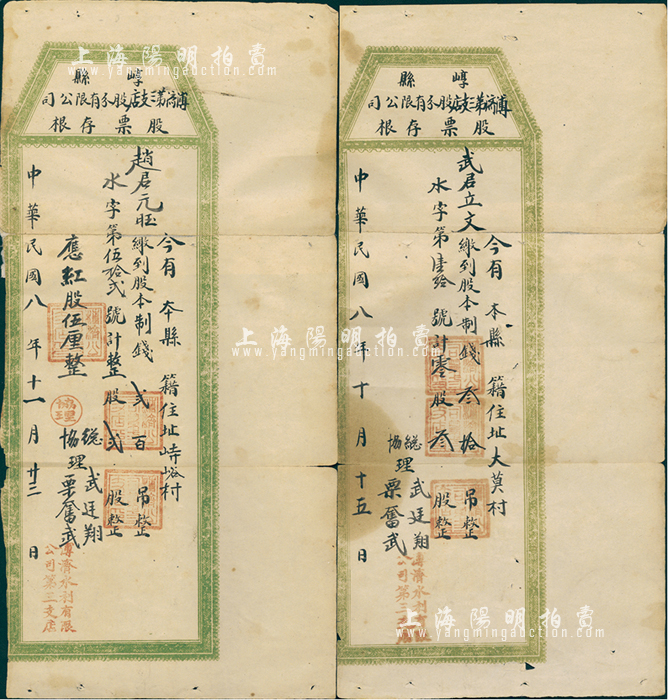 上海陽明拍賣
www.yangmingauction.com
縣崞
司公限有份股店支三第濟溥
根存票股
今有 本縣 籍住址大莫村
武君立文繳到股本制錢叁拾吊整
水字第壹拾號計零股叁股整
總理武廷翔
協理栗奮武
中華民國八年十月十五日
溥濟水利有限
公司第三支店
縣崞
司公限有份股店支三第濟溥
根存票股
今有 本縣 籍住址峙峪村
趙君元旺繳到股本制錢弍百吊整
水字第伍拾弍號計整股弍股整
應紅股伍厘整
協理
總理武廷翔
協理栗奮武
中華民國八年十一月廿三日
溥濟水利有限
公司第三支店
上海陽明拍賣
www.yangmingauction.com
上海陽明拍賣
www.yangmingauction.com